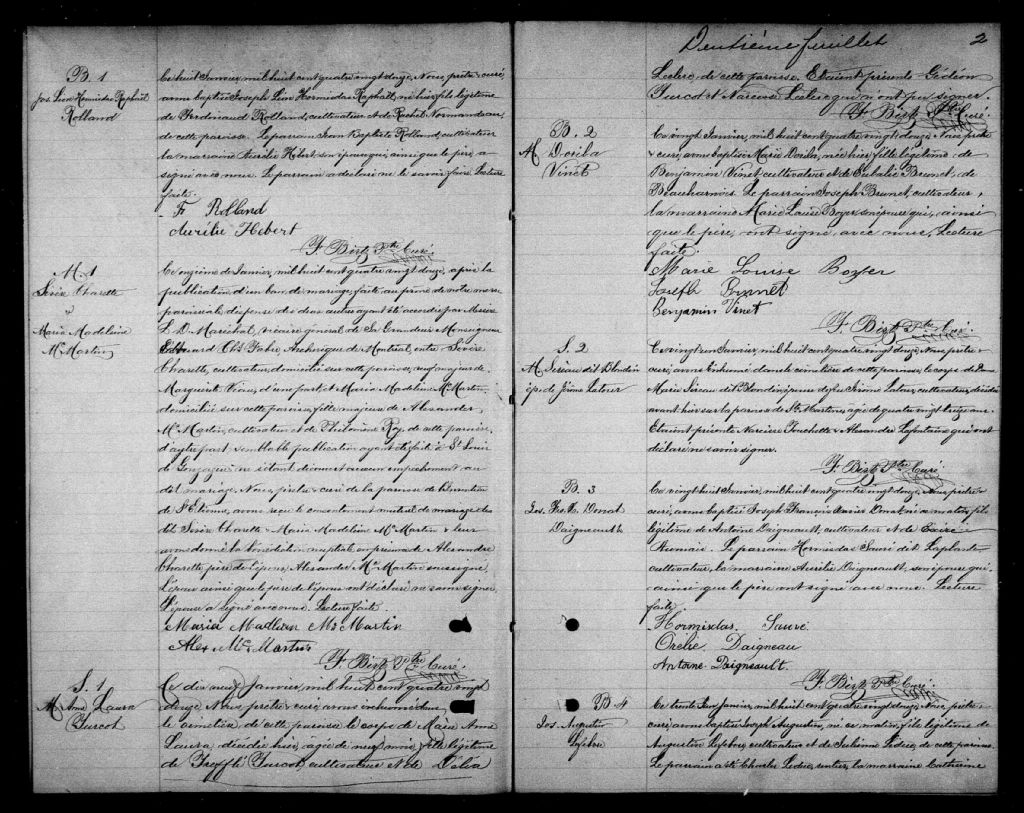 B. 1
Jos. Léon Hormisdas Raphaël
Rolland
Ce huit Janvier, mil huit cent quatre vingt douze, Nous, prêtre & curé,
avons baptisé Joseph Léon Hormisdas Raphaël, né hier, fils légitime
de Ferdinand Rolland, cultivateur et de Rachel Normandeau
de cette paroisse. Le parrain Jean Baptiste Rolland, cultivateur
la marraine Aurélie Hébert son épouse qui, ainsi que le père, a
signé avec nous. Le parrain a déclaré ne le savoir faire. Lecture
faite.
F Rolland
Aurélie Hebert
F. Bist Ptre Curé.
M. 1
Charette
&
Maria Madeleine
Mc Martin
Ce onzième de Janvier, mil huit cent quatre vingt douze, après la
publication d'un ban de mariage faite au prône de notre messe
paroissiale, dispense des deux autres ayant été accordée par Messire
L. D. Maréchal, vicaire général de Sa Grandeur Monseigneur
Edouard Chs Fabre, Archevêque de Montréal, entre
Charette, cultivateur, domicilié sur cette paroisse, veuf majeur de
Marguerite d'une part et Maria Madeleine Mc Martin,
domiciliée sur cette paroisse, fille majeure de Alexander
Mc Martin, cultivateur et de Philomène Roy, de cette paroisse,
d'autre part, semblable publication ayant été faite à St Louis
de Gonzague; ne s'étant découvert aucun empêchement au
dit mariage, Nous, prêtre & curé de la paroisse de
de St Etienne, avons reçu le consentement mutuel de mariage des
dits Charette & Maria Madeleine Mc Martin & leur
avons donné la bénédiction nuptiale en présence de Alexandre
Charette père de l'époux, Alexander Mc Martin soussigné,
L'époux ainsi que le père de l'époux ont déclaré ne savoir signer.
L'épouse a signé avec nous. Lecture faite.
Maria Madlean Mc Martin
Alex Mc Martin
F. Bist Ptre Curé.
S. 1
M. Anne Laura
Turcot
Ce dix neuf Janvier, mil huit cent quatre vingt
douze, Nous, prêtre & curé, avons inhumé dans
le cimetière de cette paroisse le corps de Marie Anne
Laura, décédée hier, âgée de neuf mois, fille légitime
de Trefflé Turcot, cultivateur et de Délia
Deuxième feuillet
2
Leclerc, de cette paroisse. Etaient présents Gédéon
Turcot & Narcisse Leclerc qui n'ont pu signer.
F. Bist Ptre Curé.
B. 2
M. Dorila
Vinet
Ce vingt Janvier, mil huit cent quatre vingt douze, Nous prêtre
& curé, avons baptisé Marie Dorila, née hier, fille légitime de
Benjamin Vinet cultivateur et de Eulalie Brunet, de
Beauharnois. Le parrain Joseph Brunet, cultivateur,
la marraine Marie Louise Boyer son épouse qui, ainsi
que le père, ont signé avec nous. Lecture
faite.
Marie Louise Boyer
Joseph Brunet
Benjamin Vinet
F. Bist Ptre Curé.
S. 2
M. Sicau dit Blondin
ép. de Jérémie Latour
Ce vingt Janvier, mil huit cent quatre vingt douze, Nous, prêtre &
curé, avons inhumé dans le cimetière de cette paroisse, le corps de Dame
Marie Sicau dit Blondin, épouse de feu Jérémie Latour, cultivateur, décédée
avant hier sur la paroisse de Ste Martine, âgée de quatre vingt ans.
Etaient présents Narcisse & Alexandre Lafontaine qui ont
déclaré ne savoir signer.
F. Bist Ptre Curé.
B. 3
Jos. Frs. X. Donat
Daigneault
Ce vingt huit Janvier, mil huit cent quatre vingt douze, Nous, prêtre &
curé, avons baptisé Joseph François Xavier Donat, né ce matin, fils
légitime de Antoine Daigneault, cultivateur et de
Le parrain Hormisdas Sauvé dit Laplante
cultivateur, la marraine Aurélie Daigneault, son épouse qui
ainsi que le père ont signé avec nous. Lecture
faite.
Hormisdas Sauvé
Orélie Daigneau
Antoine Daigneault
F. Bist Ptre Curé.
B 4
Jos. Augustin
Lefebvre
Ce trente Janvier, mil huit cent quatre vingt douze, Nous, prêtre &
curé, avons baptisé Joseph Augustin, né ce matin, fils légitime de
Augustin Lefebvre, cultivateur et de Julienne Leduc, de cette paroisse
Le parrain a été Charles Leduc, rentier, la marraine Catherine